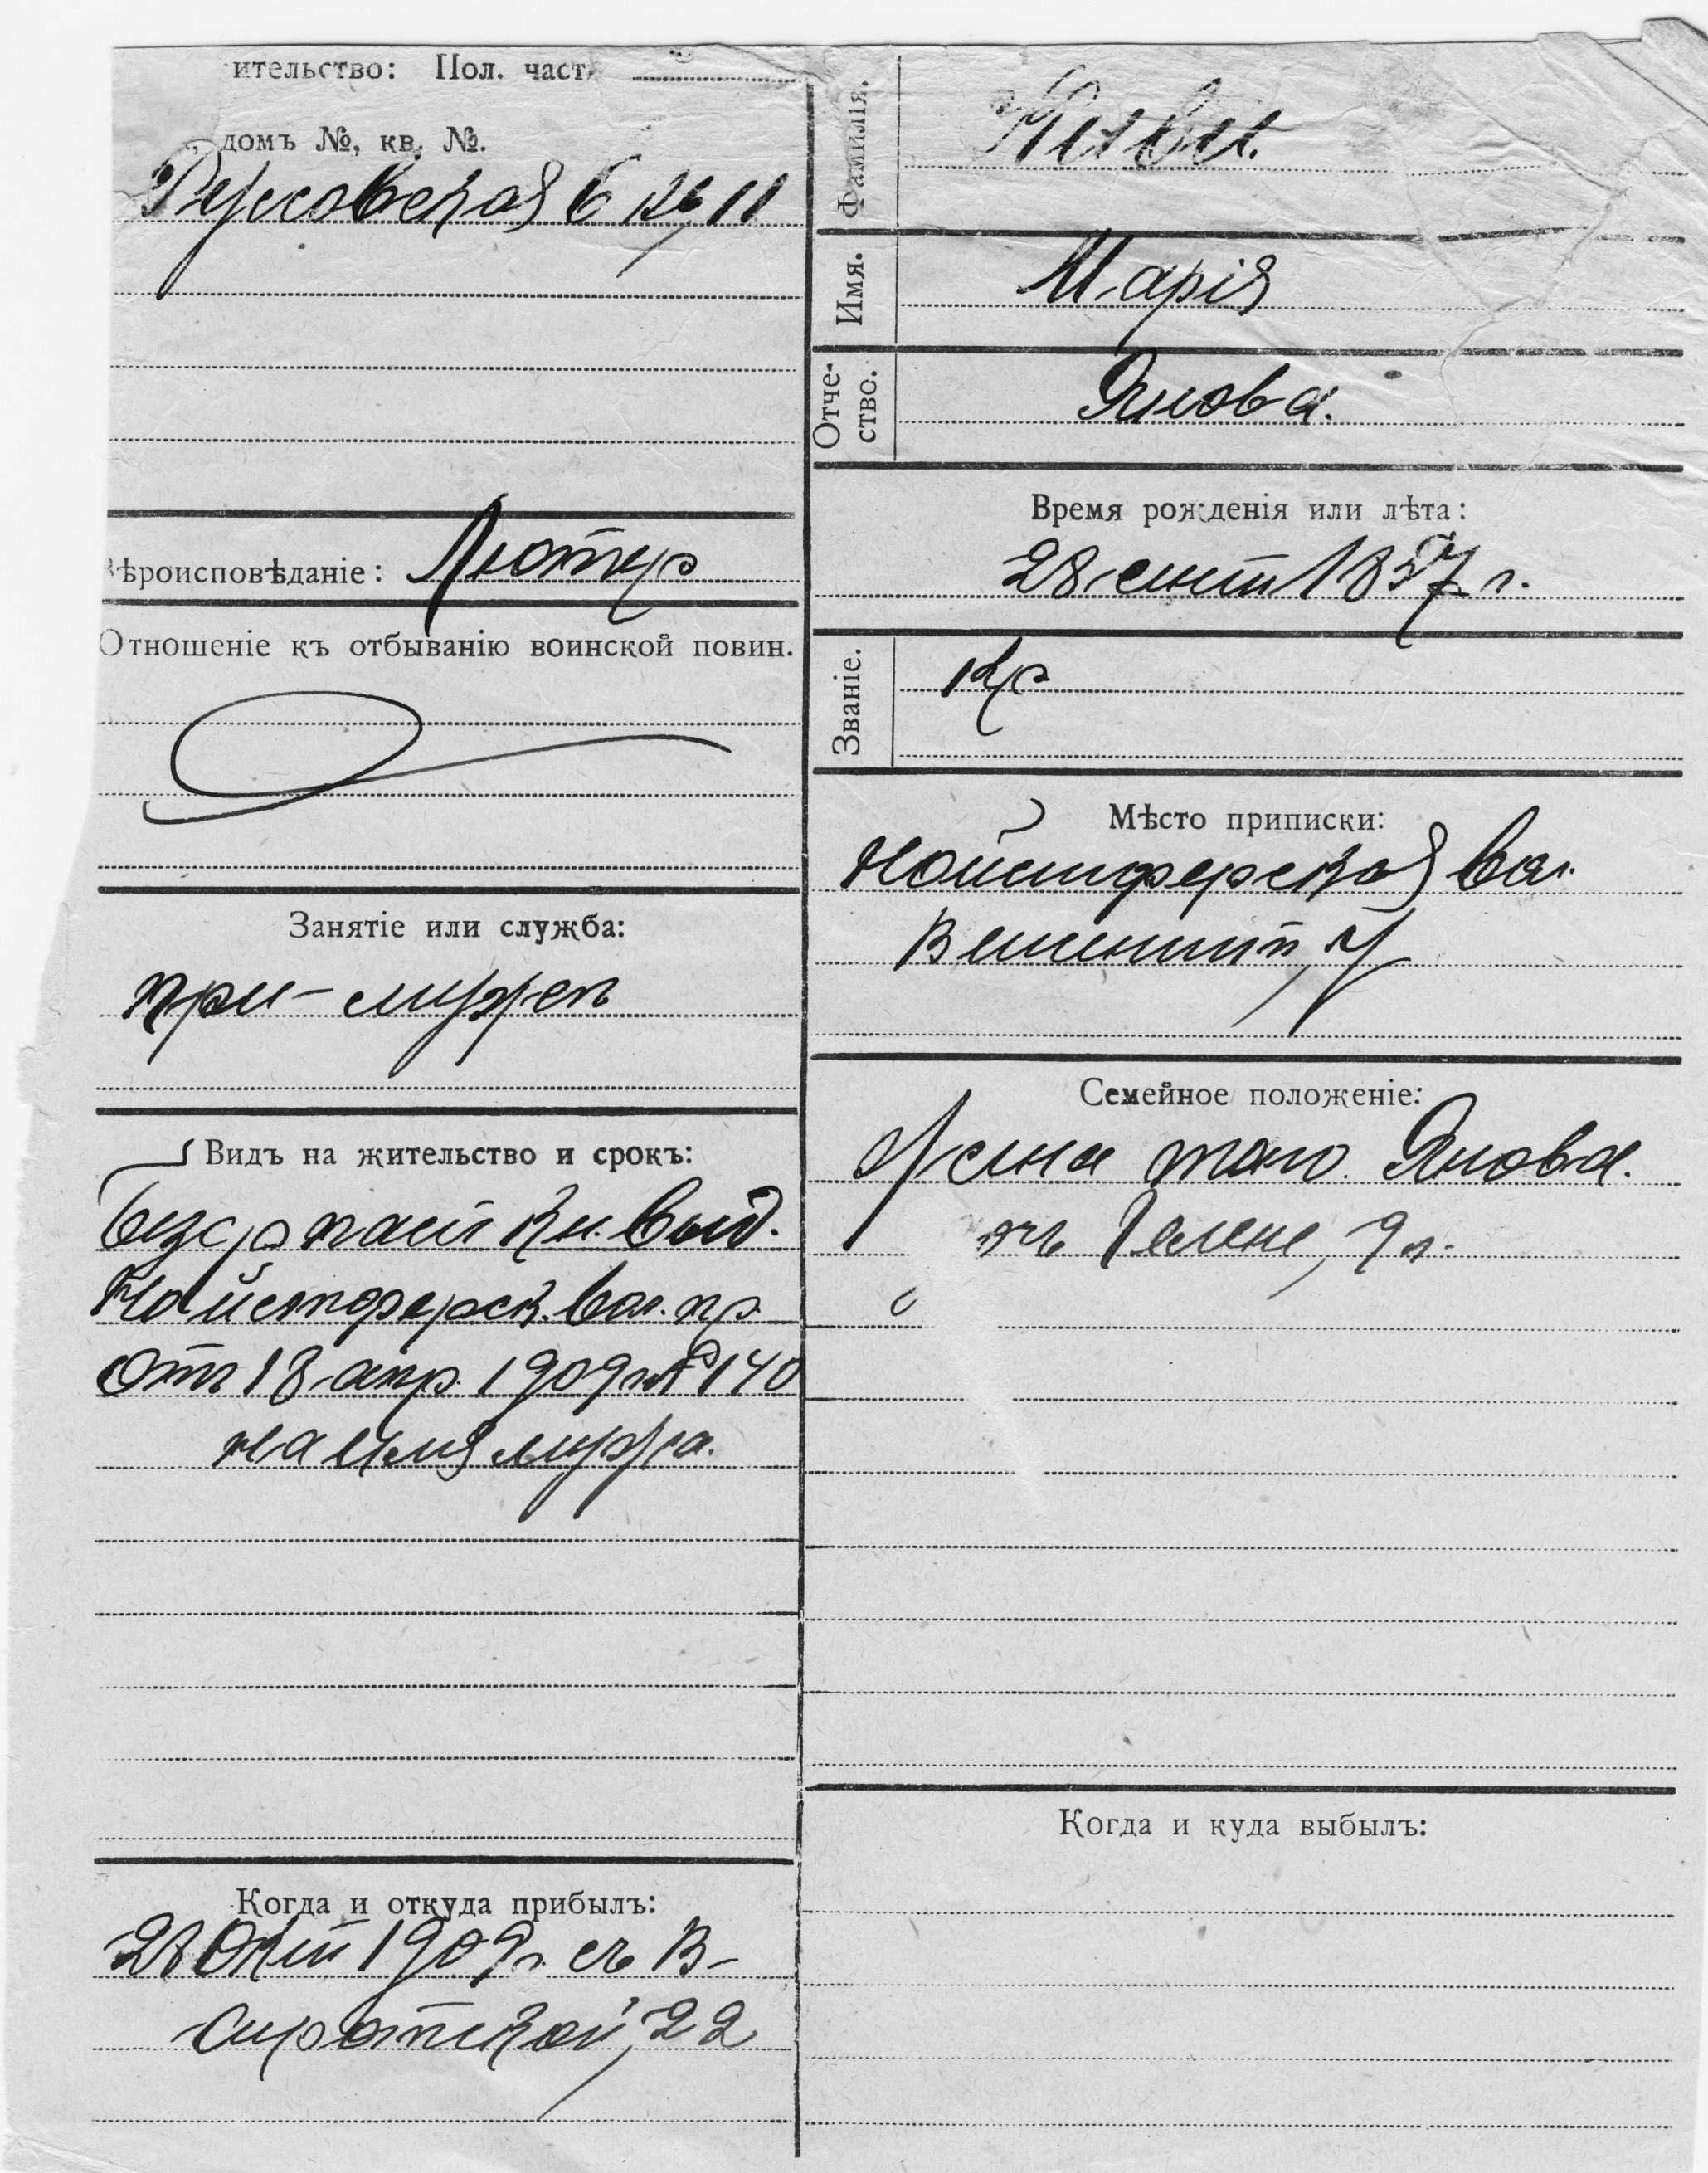 ительство: Пол. част
домъ №, кв. №.
Румовская 6 кв 11
Вѣроисповѣданіе: Лютер
Отношеніе къ отбыванію воинской повин.
Занятіе или служба:
при-мужѣ
Видъ на жительство и срокъ:
Безср пасп кн. выд.
Нойгоферск. вол. пр.
отъ 18 апр. 1909 г. № 140
на имя мужа.
Когда и откуда прибылъ:
28 Окт 1909 г. съ В-
Сиротской, 22
Фамилія.
Имя.
Марія
Отче-
ство.
Янова.
Время рожденія или лѣта:
28 сент 1857 г.
Званіе.
Кр
Мѣсто приписки:
вол.
У
Семейное положеніе:
Жена того Янова.
9 л.
Когда и куда выбылъ: